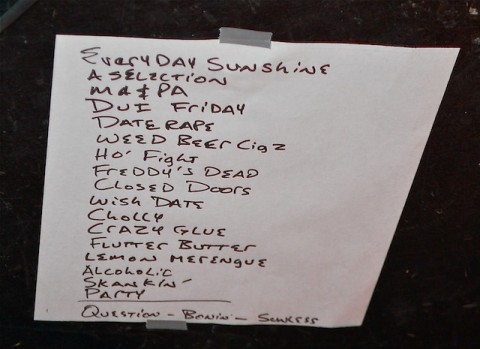 EveryDAY SUNSHiNE
A SELECTiON
Ma & PA
DUI FRiDAY
DATE RAPE
WEED BEER Cigz
Ho' Fight
FREDDY'S DEAD
CLOSED DOORS
WiSH DATE
Cholly
CRAZY GLUE
FLUTTER BUTTER
LEMON MERENGUE
ALCOHOLiC
SKANKiN'
PARTY
QUESTiON - BONiN' -